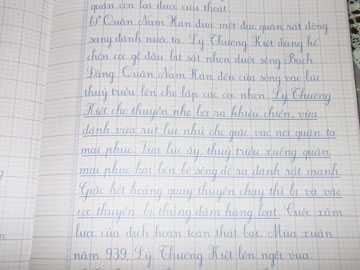 quân còn lại dưới cửa thoát.
b) Quân Nam Hán đưa một đạo quân sát đông
sang đánh nước ta. Lý Thường Kiệt đóng
chôn cọc gỗ đầu bịt sắt nhọn dưới sông Bạch
Đằng. Quân Nam Hán đến cửa sông vào lúc
thuỷ triều lên che lấp các cọc nhọn. Lý Thường
Kiệt cho thuyền nhẹ bơi ra khiêu chiến, vừa
đánh vừa rút lui nhử cho giặc vào nơi quân ta
mai phục. Tới lúc ấy, thuỷ triều xuống quân
mai phục hai bên bờ sông đổ ra đánh rất mạnh.
Giặc hốt hoảng quay thuyền chạy thì bị va vào
cọc thuyền bị thủng đắm hàng loạt. Cuộc xâm
lược của địch hoàn toàn thất bại. Mùa xuân
năm 939, Lý Thường Kiệt lên ngôi vua.